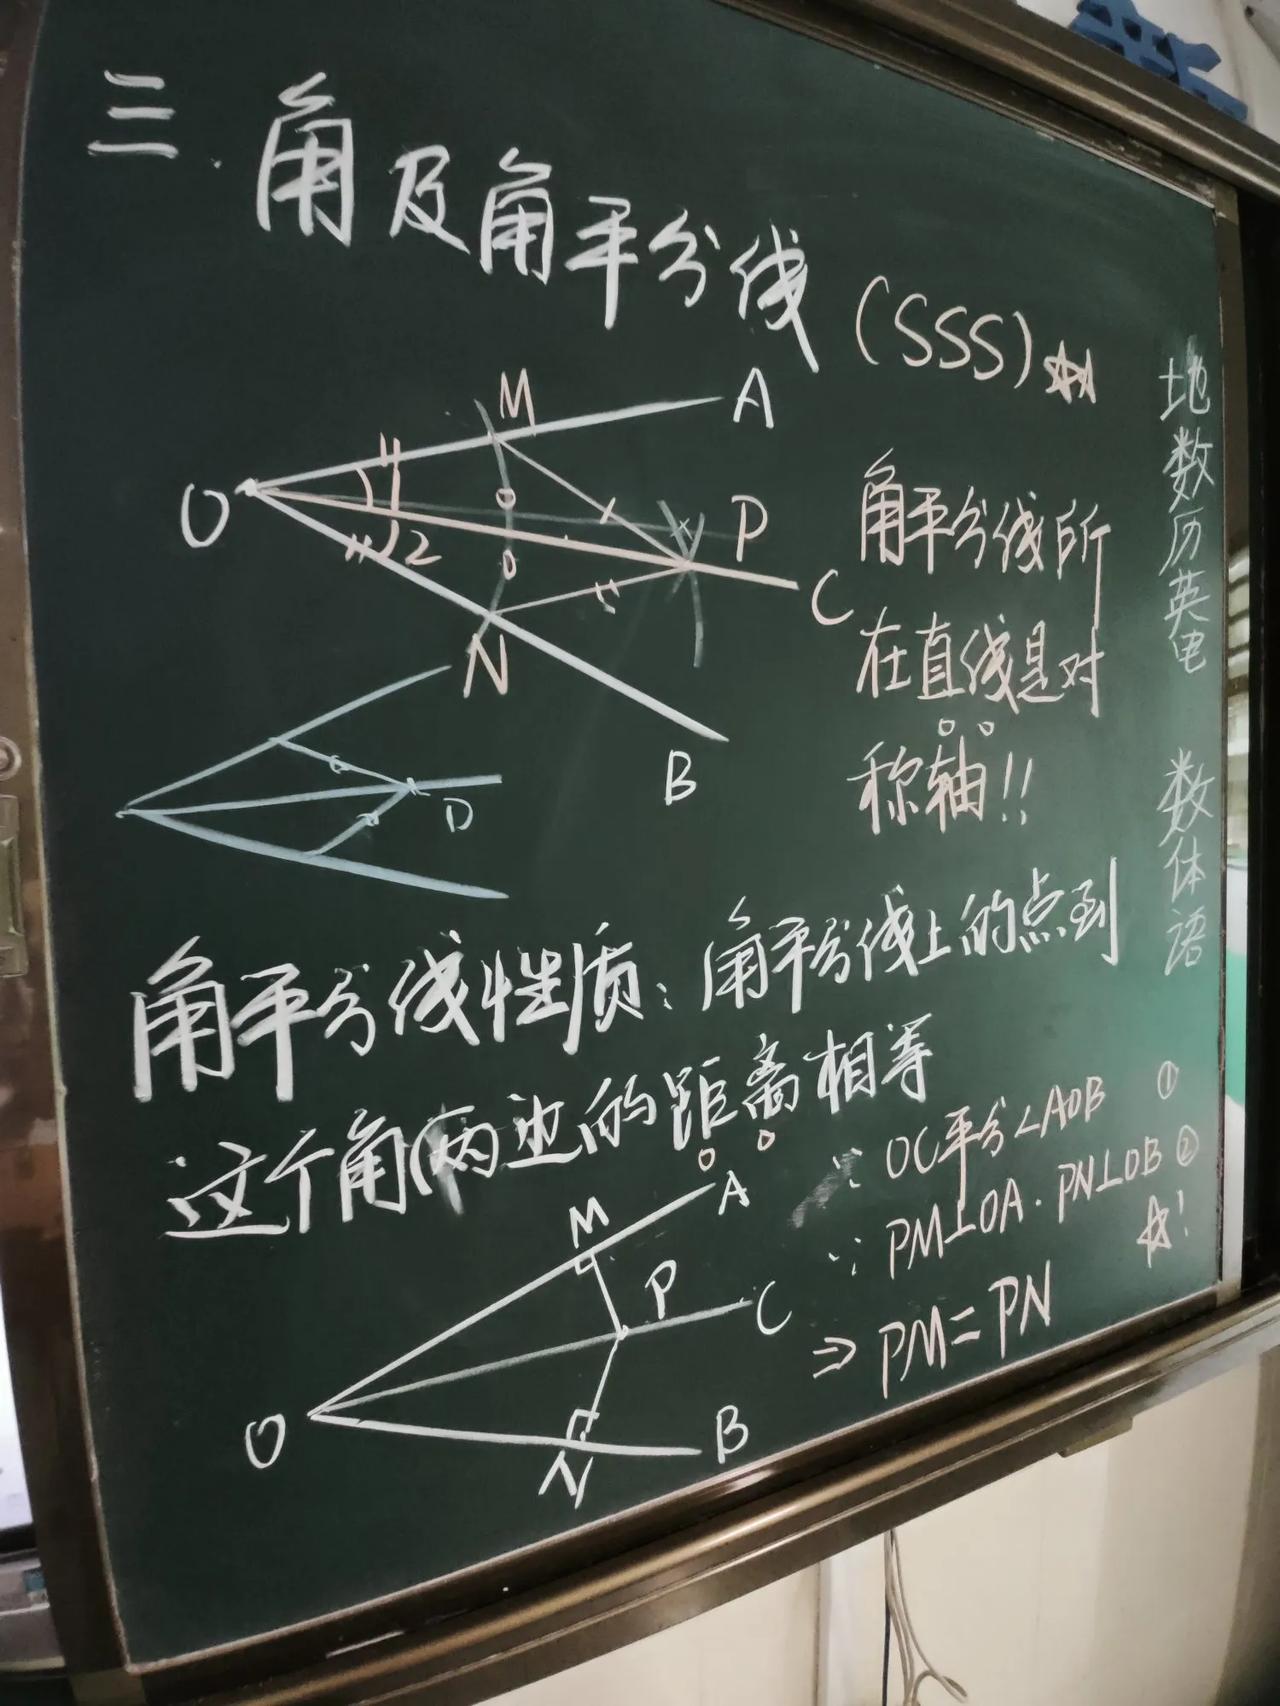 三、角及角平分线
(SSS)
M
A
O
1
2
P
C
N
B
角平分线所
在直线是对
称轴!!
D
角平分线性质:角平分线上的点到
这个角(两边的距离相等
∵ OC平分∠AOB ①
∵ PM⊥OA.PN⊥OB ②
⇒ PM=PN
!
M
A
P
C
O
B
N
地
数
历
英
电
数
体
语